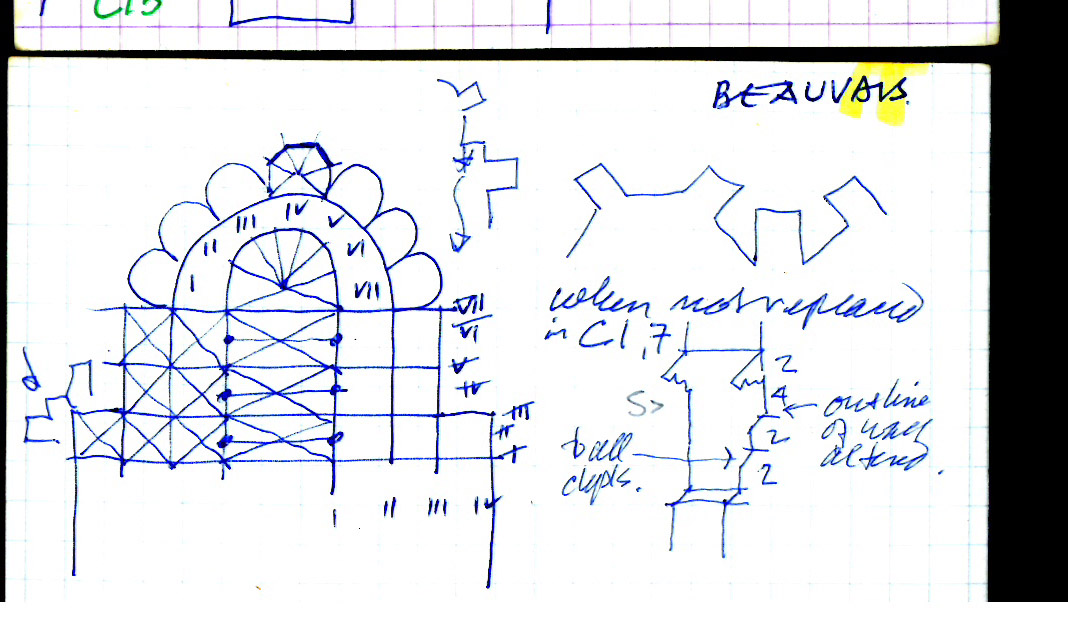 C15
BEAUVAIS.
I II III IV V VI VII
VII
VI
V
IV
III
II
I
d
when not replaced
in C17,
2
4
S>
outline
of
altered.
2
2
I II III IV